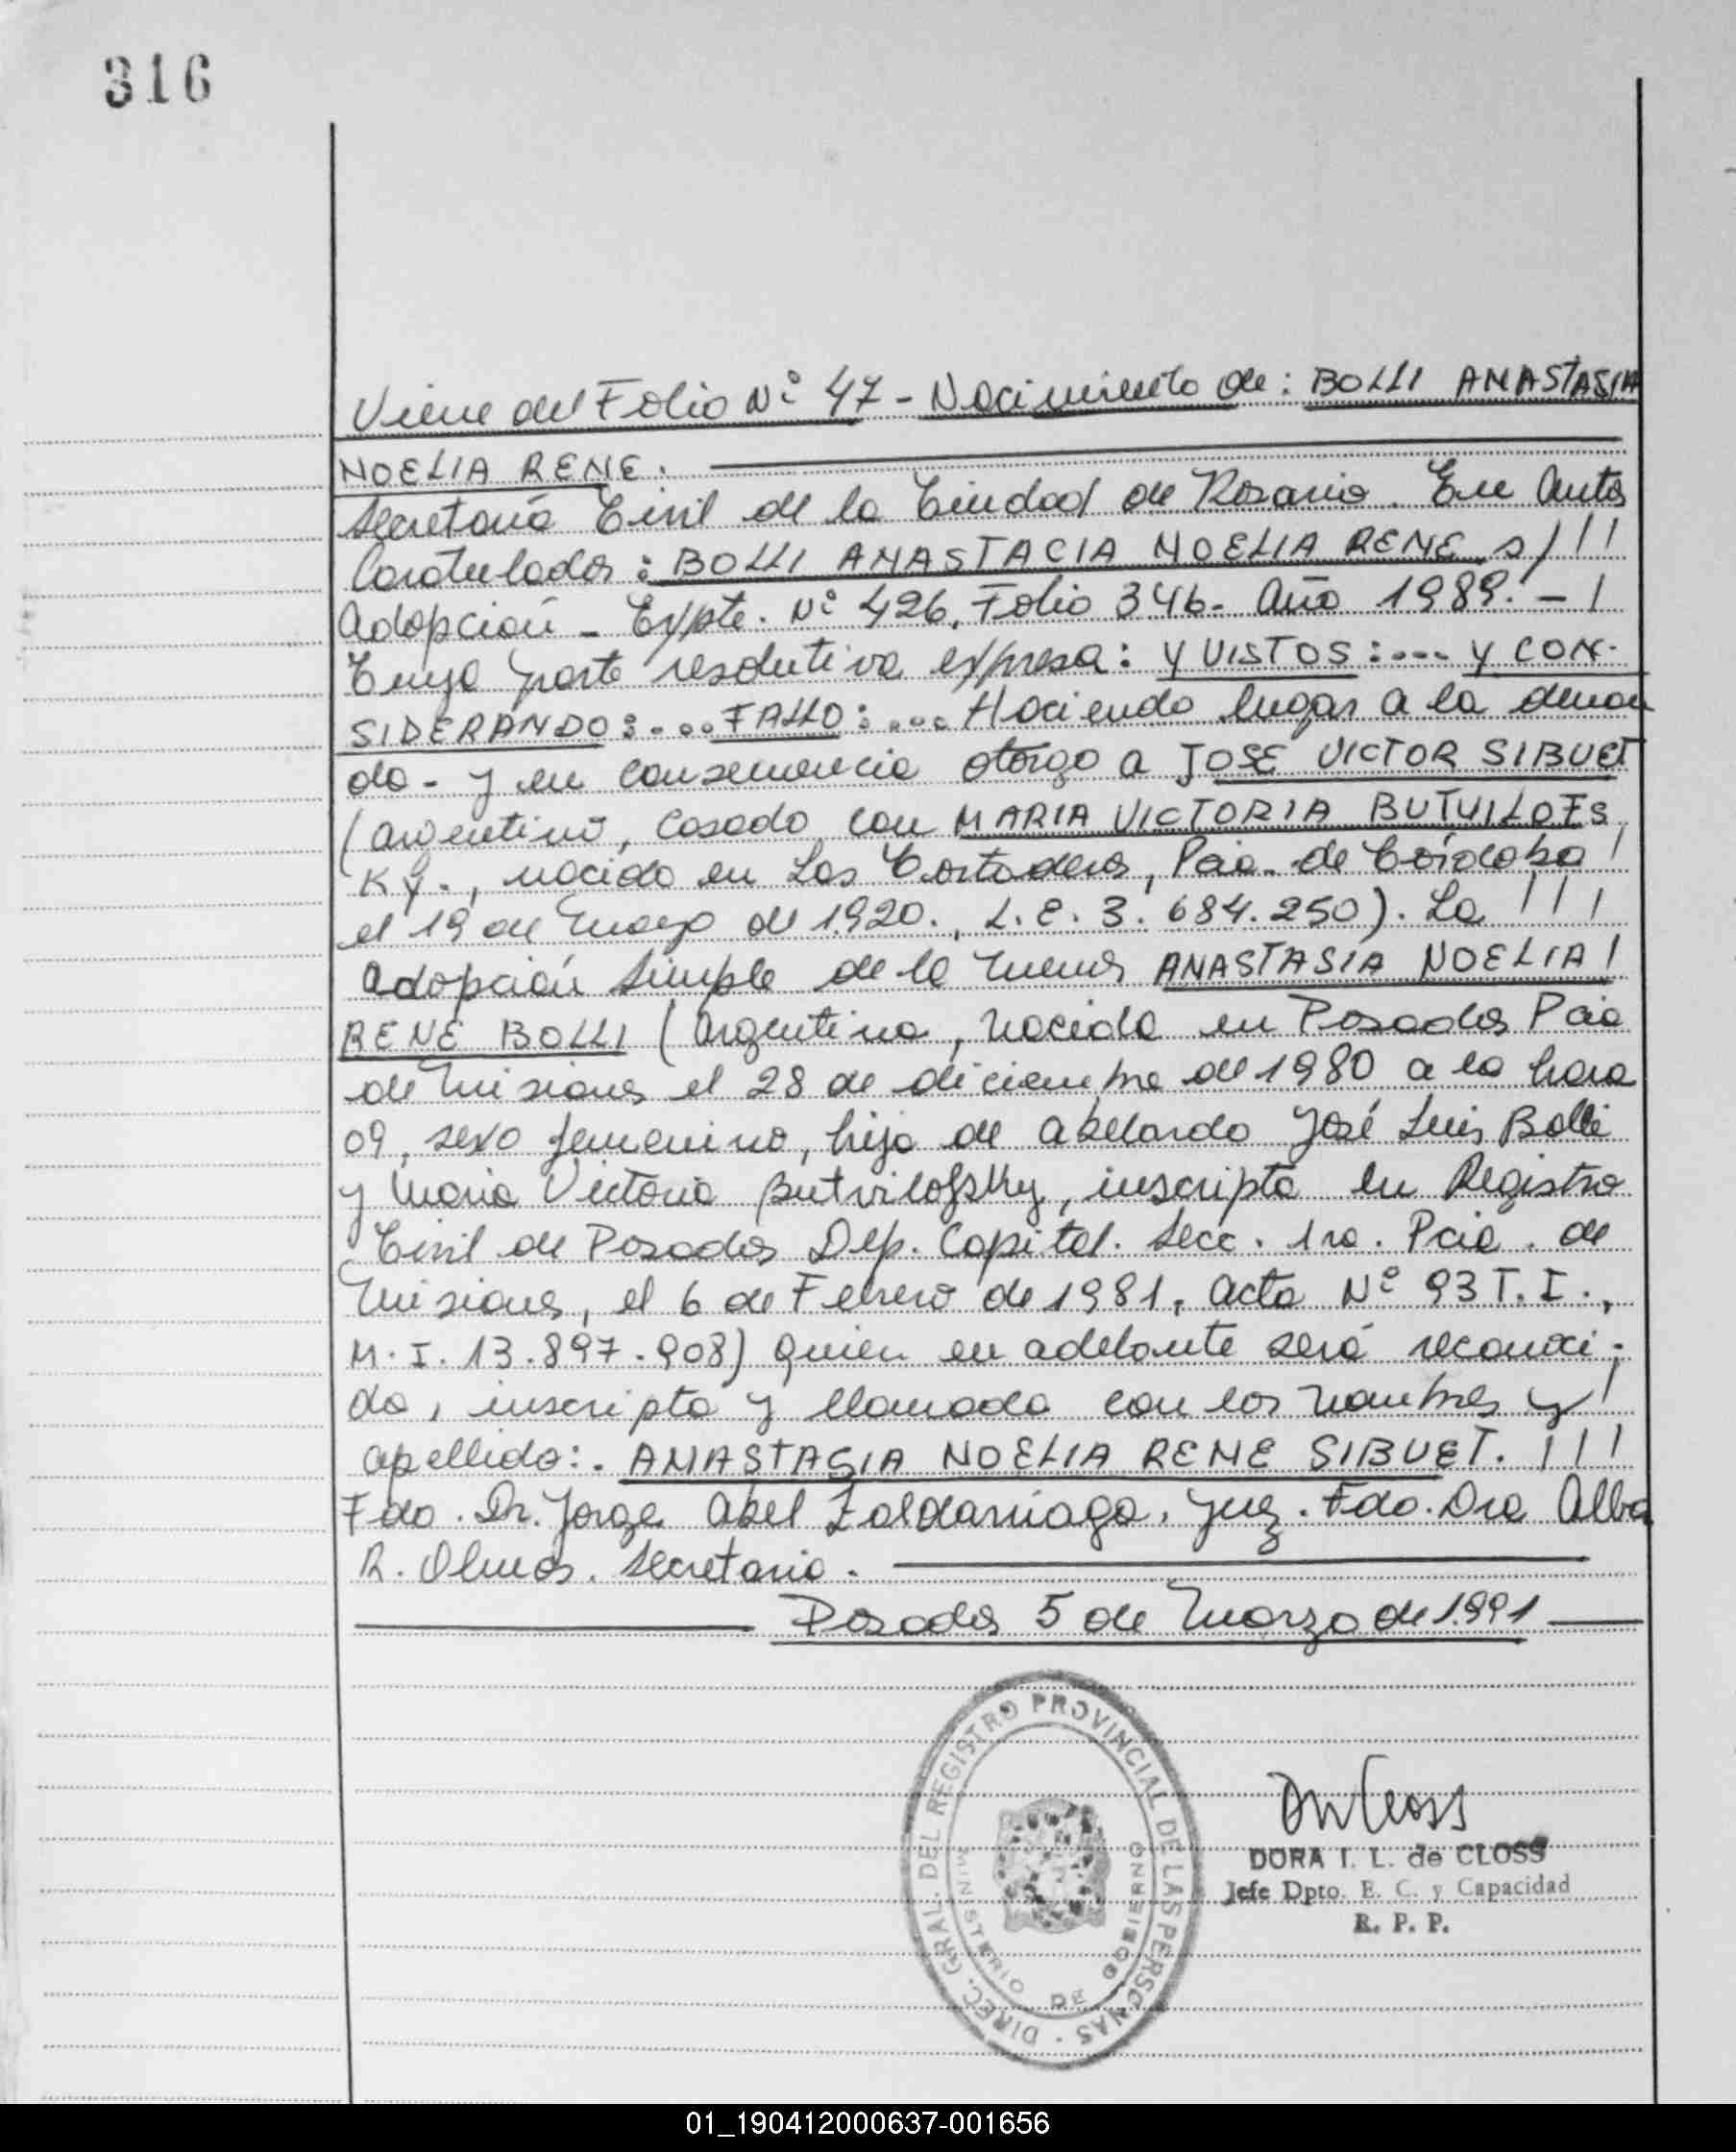 316
Viene del Folio Nº 47 - Nacimiento de: BOLLI ANASTASIA
NOELIA RENE.
Secretaría Civil de la Ciudad de Rosario. En Autos
Caratulados: BOLLI ANASTACIA NOELIA RENE s/ ! !
Adopción - Expte. Nº 426, Folio 346- Año 1989. - !
Cuya parte resolutiva expresa: Y VISTOS:.... Y CON-
SIDERANDO:.... FALLO:.... Haciendo lugar a la deman
da - y en consecuencia otorgo a JOSE VICTOR SIBUET
(argentino, casado con MARIA VICTORIA BUTVILOFS
KY., nacido en Las Cortaderas, Pcia. de Córdoba !
el 19 de marzo de 1.920., L.E. 3.684.250). La ! ! !
Adopción Simple de la menor ANASTASIA NOELIA !
RENE BOLLI (Argentina, nacida en Posadas Pcia
de Misiones el 28 de diciembre de 1980 a la hora
09, sexo femenino, hija de Abelardo José Luis Bolli
y María Victoria Butvilofsky, inscripta en Registro
Civil de Posadas Dep. Capital. Secc. 1ra. Pcia. de
Misiones, el 6 de Febrero de 1981, Acta Nº 93 T. I.,
M.I. 13.897.908) quien en adelante será reconoci-
da, inscripta y llamada con los nombres y !
apellido:. ANASTASIA NOELIA RENE SIBUET. ! ! !
Fdo. Dr. Jorge Abel Zaldarriaga, Juez. Fdo. Dra Alba
R. Olmos. Secretaria.
Posadas 5 de Marzo de 1.991
DIREC. GRAL. DEL REGISTRO PROVINCIAL DE LAS PERSONAS
MINISTERIO DE GOBIERNO
DORA I. L. de CLOSS
Jefe Dpto. E. C. y Capacidad
R. P. P.
01_190412000637-001656